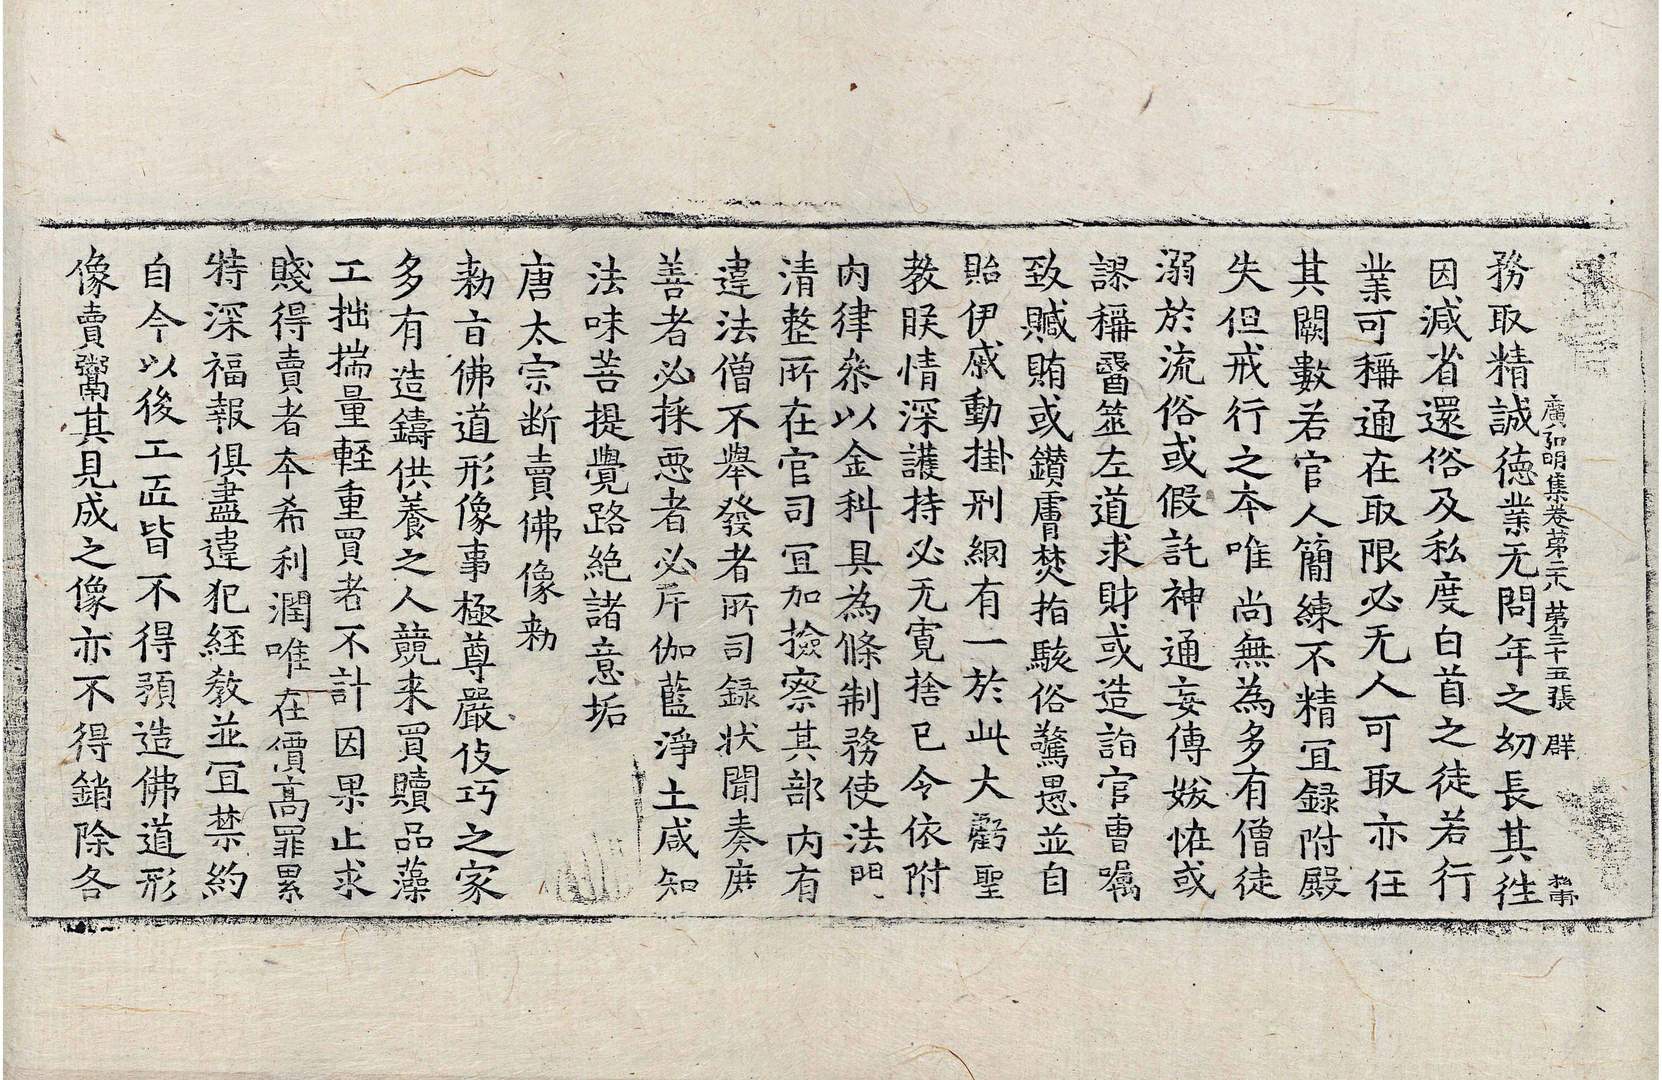 廣弘明集卷第二十八 第三十五張 群
務取精誠德業无問年之幼長其徃
因減省還俗及私度白首之徒若行
業可稱通在取限必无人可取亦任
其闕數若官人簡練不精冝録附殿
失但戒行之夲唯尚無為多有僧徒
溺於流俗或假託神通妄傳妭恠或
謬稱醫筮左道求財或造詣官曹囑
致贓賄或鑚膚焚指駭俗驚愚並自
貽伊戚動掛刑網有一於此大虧聖
教朕情深護持必无寛捨已令依附
内律叅以金科具為條制務使法門
清整所在官司冝加撿察其部内有
違法僧不舉發者所司録状聞奏庶
善者必採惡者必斥伽藍淨土咸知
法味菩提覺路絶諸意垢
唐太宗断賣佛像勑
勑旨佛道形像事極尊嚴伎巧之家
多有造鑄供養之人競来買贖品藻
工拙揣量輕重買者不計因果止求
賤得賣者夲希利潤唯在價髙罪累
特深福報俱盡違犯經教並冝禁約
自今以後工匠皆不得預造佛道形
像賣鬻其見成之像亦不得銷除各